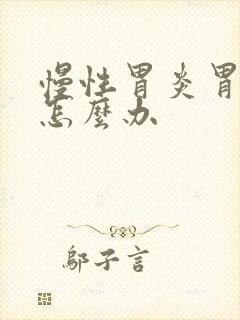 慢性胃炎胃
怎麼办
鄔子言